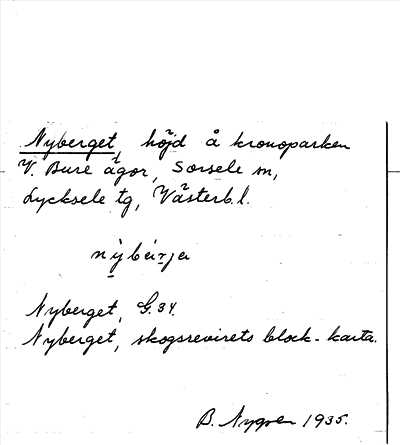 Nyberget, höjd å kronoparken
V. Bure ägor, Sorsele sn,
Lycksele tg, Västerb.l.
Nyberget, G.34.
Nyberget, skogsrevirets block-karta.
B. Nygren 1935.